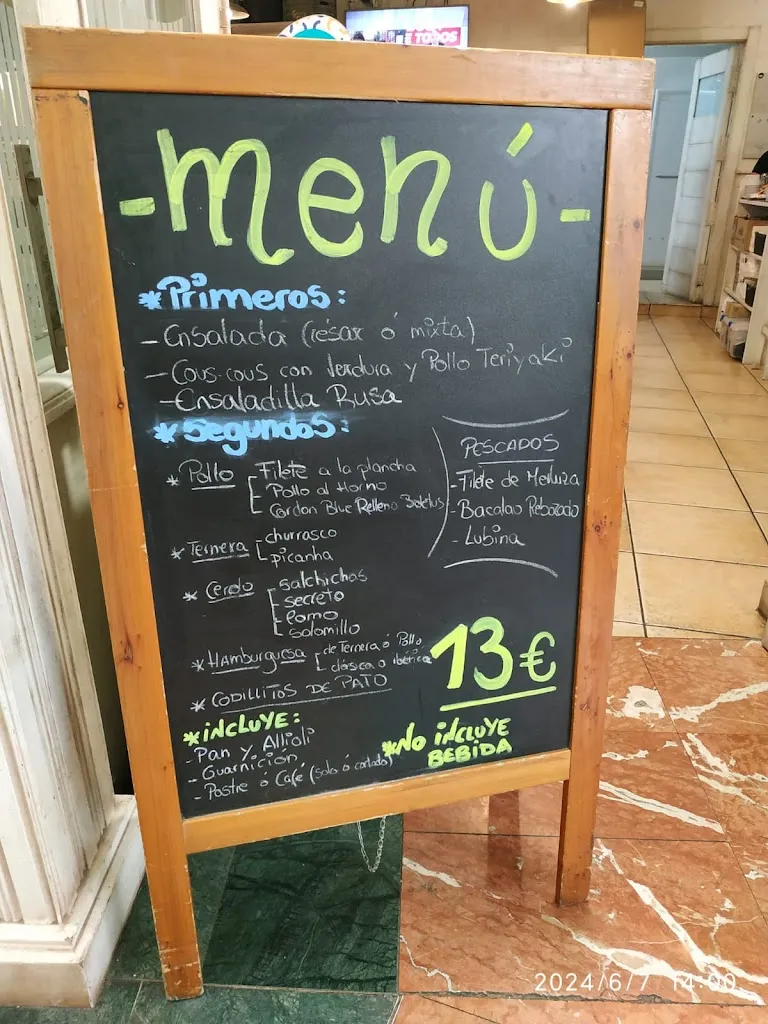 TODOS
-menú-
*Primeros:
- Ensalada (césar ó mixta)
- Cous-cous con Verdura y Pollo Teriyaki
- Ensaladilla Rusa
*Segundos:
* Pollo
Filete a la plancha
Pollo al Horno
Cordon Blue Relleno Boletus
* Ternera
churrasco
picanha
* Cerdo
salchichas
secreto
lomo
solomillo
* Hamburguesa
de Ternera ó Pollo
clásica o ibérica
* CODILLITOS DE PATO
PESCADOS
- Filete de Merluza
- Bacalao Rebozado
- Lubina
13€
*INCLUYE:
- Pan y Allioli
- Guarnición
- Postre ó Café (solo ó cortado)
*NO INCLUYE
BEBIDA
2024/6/7 14:00